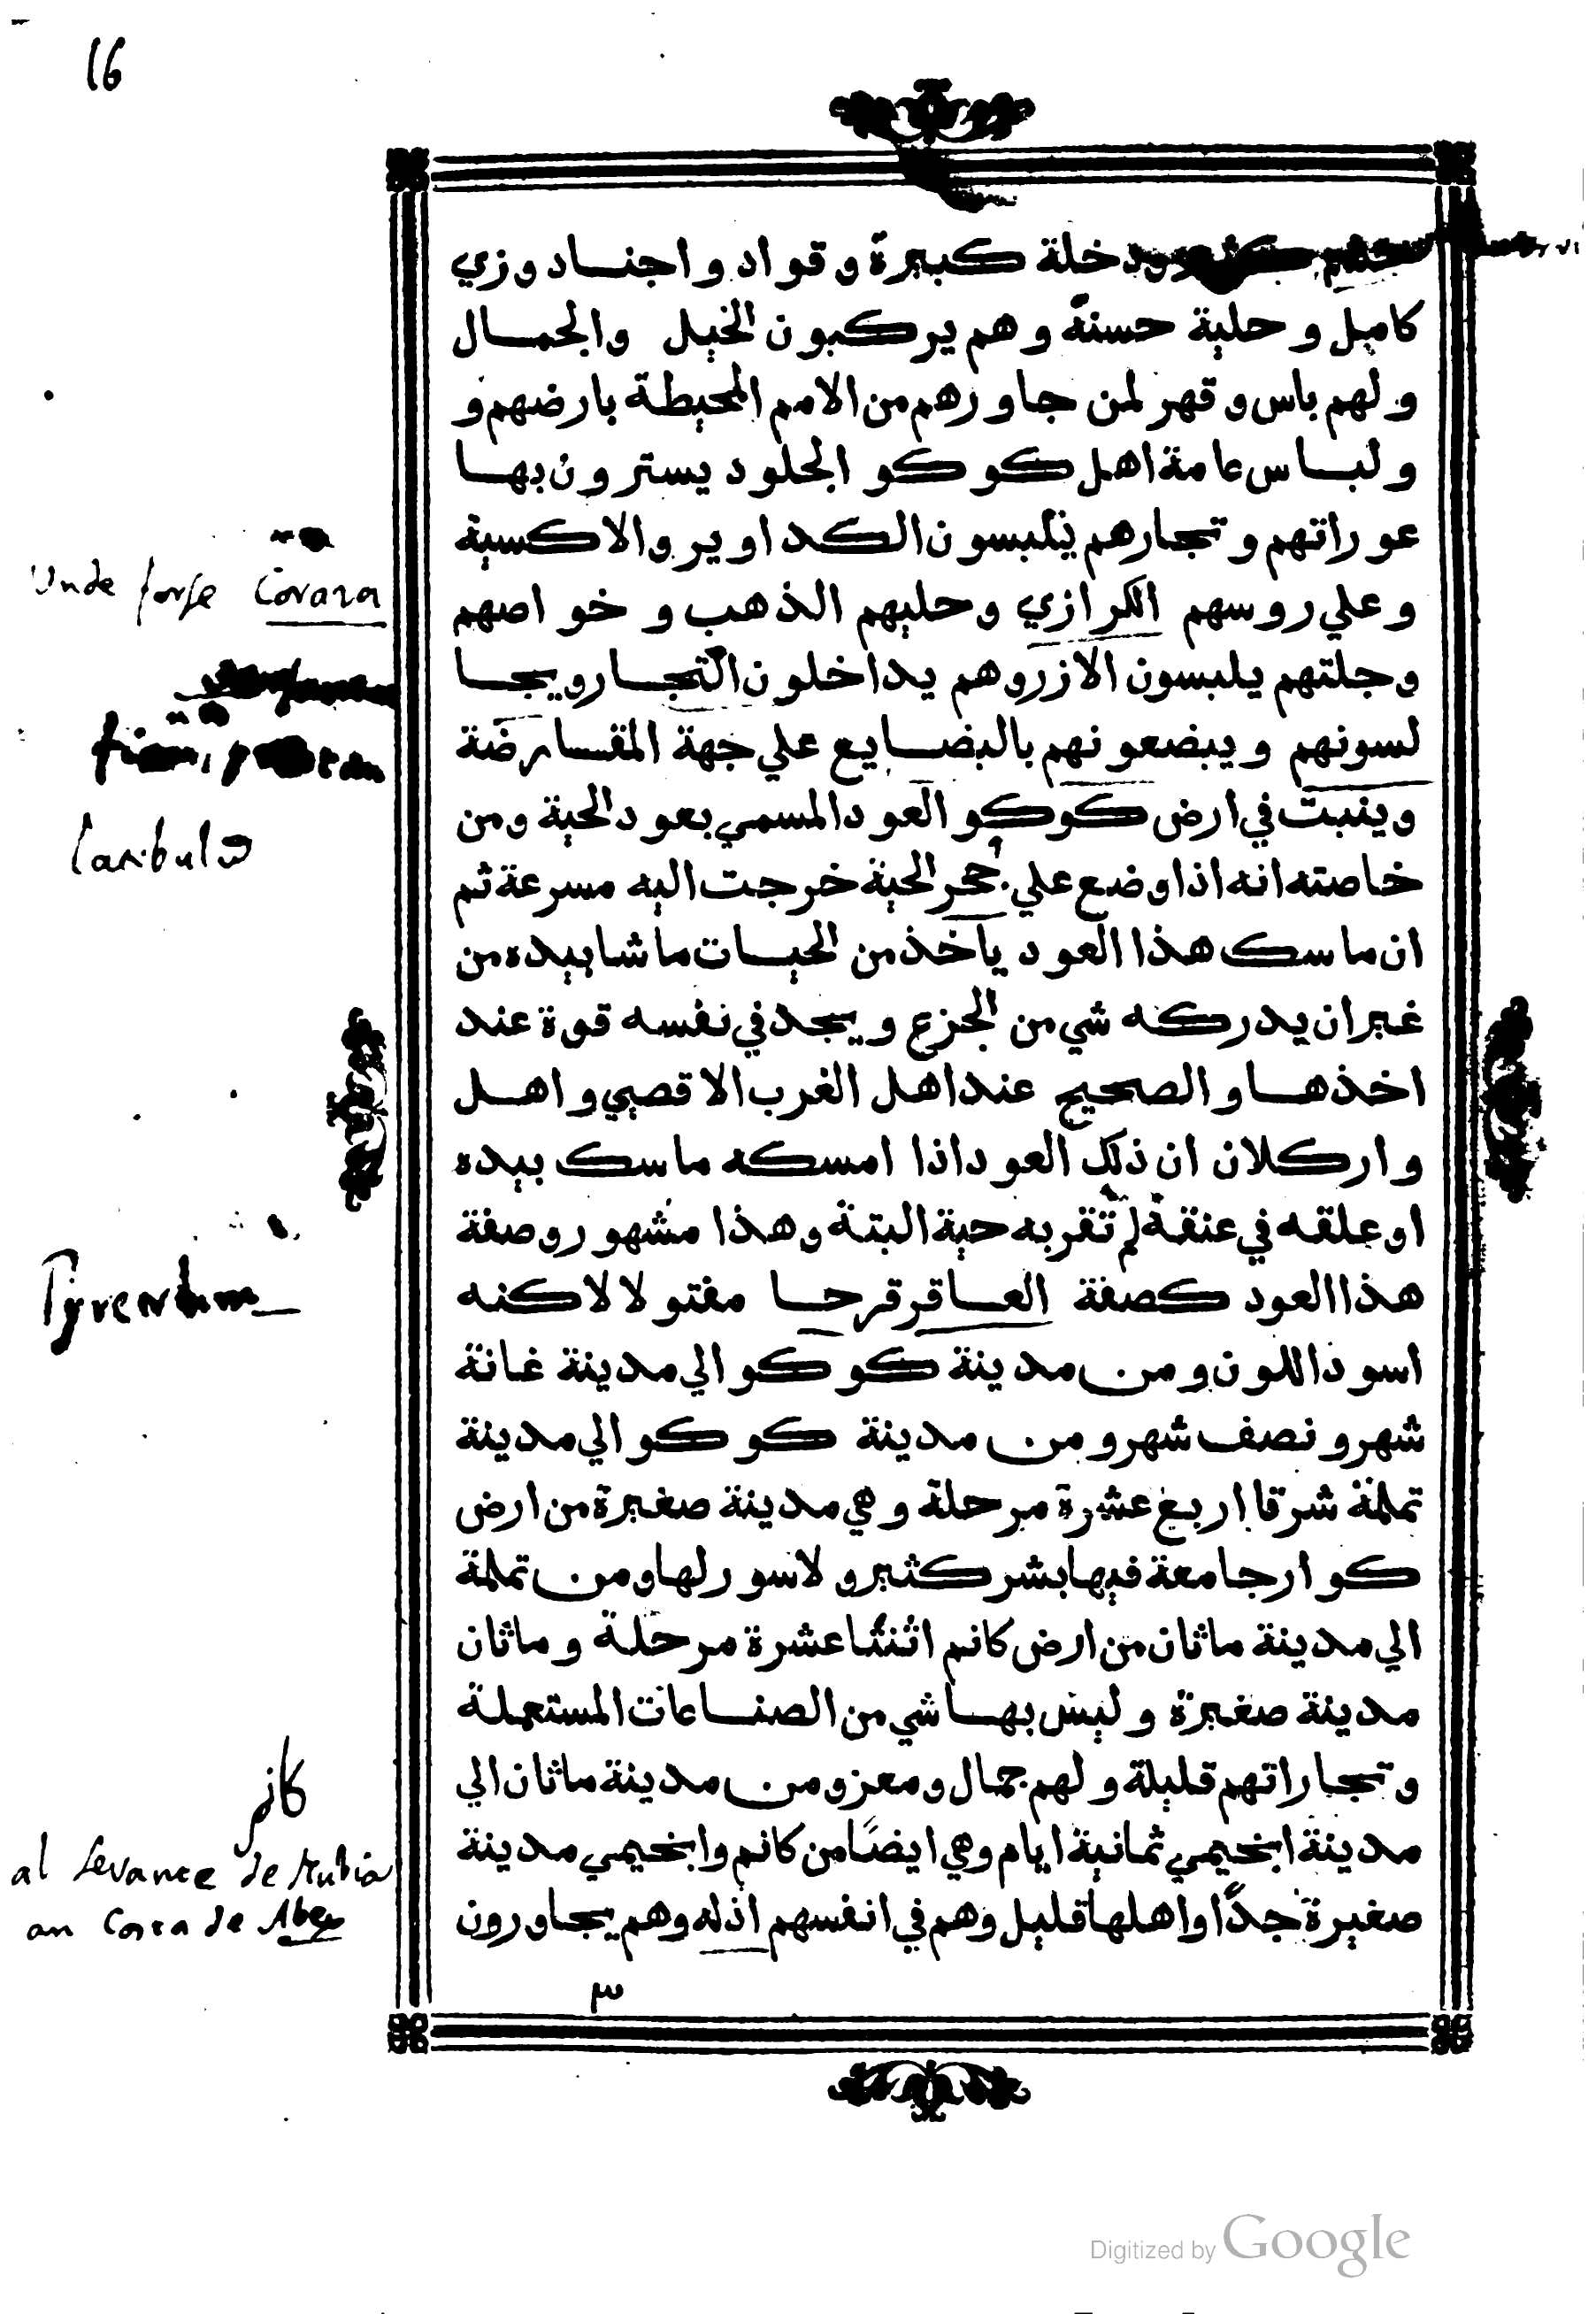 16
وحشم كثير ودخلة كبيرة وقواد واجناد وزي
كامل وحلية حسنة وهم يركبون الخيل والجمال
ولهم باس وقهر لمن جاورهم من الامم المحيطة بارضهم و
ولباس عامة اهل كوكو الجلود يسترون بها
عوراتهم وتجارهم يلبسون الكداوير والاكسية
وعلي روسهم الكرازي وحليهم الذهب وخواصهم
وجلتهم يلبسون الازر وهم يداخلون التجار ويجا
لسونهم ويبضعونهم بالبضايع علي جهة المقارضة
وينبت في ارض كوكو العود المسمي بعود الحية ومن
خاصته انه اذا وضع علي جحر الحية خرجت اليه مسرعة ثم
ان ماسك هذا العود ياخذ من الحيات ما شا بيده من
غير ان يدركه شي من الجزع ويجد في نفسه قوة عند
اخذها والصحيح عند اهل الغرب الاقصي واهل
واركلان ان ذلك العود اذا امسكه ماسك بيده
او علقه في عنقة لم تقربه حية البتة وهذا مشهور وصفة
هذا العود كصفة العاقرقرحا مفتولا لاكنه
اسود اللون ومن مدينة كوكو الي مدينة غانة
شهر ونصف شهر ومن مدينة كوكو الي مدينة
تملمة شرقا اربع عشرة مرحلة وهي مدينة صغيرة من ارض
كوار جامعة فيها بشر كثير ولا سور لها ومن تملمة
الي مدينة ماثان من ارض كانم اثنتا عشرة مرحلة وماثان
مدينة صغيرة وليس بها شي من الصناعات المستعملة
وتجاراتهم قليلة ولهم جمال ومعز ومن مدينة ماثان الي
مدينة انجيمي ثمانية ايام وهي ايضًا من كانم وانجيمي مدينة
صغيرة جدًّا واهلها قليل وهم في انفسهم اذله وهم يجاورون
٣
Unde forse Corara
كانم
al Levante de Nubia
an Costa de Abex
Digitized by Google